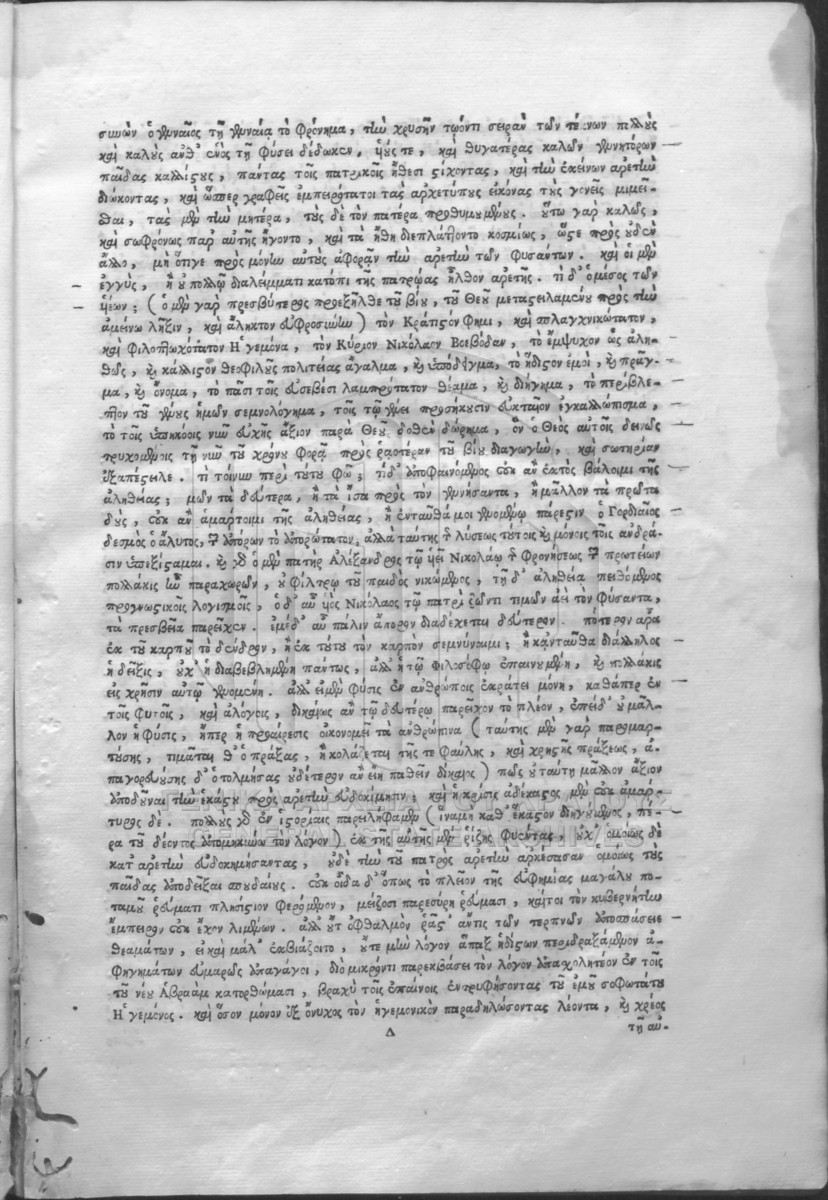 συνὼν ὁ γενναῖος τῇ γενναίᾳ τὸ φρόνημα, τὴν χρυσῆν τῳόντι σειρὰν τῶν τέκνων πολλοὺς
καὶ καλοὺς ἀνθ' ἑνὸς τῇ φύσει δέδωκεν, υἱούς τε, καὶ θυγατέρας καλῶν γεννητόρων
παῖδας καλλίστους, πάντας τοῖς πατρικοῖς ἤθεσι στίχοντας, καὶ τὴν ἐκείνων ἀρετὴν
διώκοντας, καὶ ὥσπερ γραφεῖς ἐμπειρότατοι τὰς ἀρχετύπους εἰκόνας τοὺς γονεῖς μιμεῖ-
σθαι, τὰς μὲν τὴν μητέρα, τοὺς δὲ τὸν πατέρα προθυμουμένους. οὕτω γὰρ καλῶς,
καὶ σωφρόνως παρ' αὐτῆς ἤγοντο, καὶ τὰ ἤθη διεπλάττοντο κοσμίως, ὥστε πρὸς οὐδὲν
ἄλλο, μὴ ὅτιγε πρὸς μόνην αὐτοὺς ἀφορᾷν τὴν ἀρετὴν τῶν φυσάντων. καὶ οἱ μὲν
ἐγγὺς, ἢ οὐ πολλῷ διαλείμματι κατόπι τῆς πατρῴας ἦλθον ἀρετῆς. τί δ' ὁ μέσος τῶν
υἱέων; (ὁ μὲν γὰρ πρεσβύτερος προεξῆλθε τοῦ βίου, τοῦ Θεοῦ μεταστειλαμένου πρὸς τὴν
ἀμείνω λῆξιν, καὶ ἄληκτον εὐφροσύνην) τὸν Κράτιστόν φημι, καὶ σπλαγχνικώτατον,
καὶ Φιλοπτωχότατον Ἡγεμόνα, τὸν Κύριον Νικόλαον Βοεβόδαν, τὸ ἔμψυχον ὡς ἀλη-
θῶς, καὶ κάλλιστον θεοφιλοῦς πολιτείας ἄγαλμα, καὶ ὑπόδειγμα, τὸ ἥδιστον ἐμοὶ, καὶ πρᾶγ-
μα, καὶ ὄνομα, τὸ πᾶσι τοῖς εὐσεβέσι λαμπρότατον θέαμα, καὶ διήγημα, τὸ περίβλε-
πτον τοῦ γένους ἡμῶν σεμνολόγημα, τοῖς τῷ γένει προσήκουσιν εὐκταῖον ἐγκαλλώπισμα,
τὸ τοῖς ὑπηκόοις νῦν εὐχῆς ἄξιον παρὰ Θεοῦ δοθὲν δώρημα, ὃν ὁ Θεὸς αὐτοῖς δεινῶς
τρυχομένοις τῇ νῦν τοῦ χρόνου φορᾷ πρὸς ῥαστέραν τοῦ βίου διαγωγὴν, καὶ σωτηρίαν
ἐξαπέστειλε. τί τοίνυν περὶ τούτου φῶ; τί δ' ἀποφαινόμενος οὐκ ἂν ἐκτὸς βάλοιμι τῆς
ἀληθείας; μῶν τὰ δεύτερα, ἢ τὰ ἴσα πρὸς τὸν γεννήσαντα, ἢ μᾶλλον τὰ πρῶτα
δοὺς, οὐκ ἂν ἁμάρτοιμι τῆς ἀληθείας, ἢ ἐνταῦθά μοι γενομένῳ πάρεστιν ὁ Γορδιαῖος
δεσμὸς ὁ ἄλυτος, τῶν ἀπόρων τὸ ἀπορώτατον; ἀλλὰ ταύτης τῆς λύσεως τούτοις καὶ μόνοις τοῖς ἀνδρά-
σιν ὑπεξίσταμαι. καὶ γὰρ ὁ μὲν πατὴρ Ἀλέξανδρος τῷ υἱεῖ Νικολάῳ τῆς φρονήσεως τῶν πρωτείων
πολλάκις ἦν παραχωρῶν, οὐ φίλτρῳ τοῦ παιδὸς νικώμενος, τῇ δ' ἀληθείᾳ πειθόμενος
προγνωστικοῖς λογισμοῖς, ὁ δ' αὖ υἱὸς Νικόλαος τῷ πατρὶ ζῶντι τιμῶν ἀεὶ τὸν φύσαντα,
τὰ πρεσβεῖα παρεῖχεν. ἐμὲ δ' αὖ πάλιν ἄπορον διαδέχεται δεύτερον. πότερον ἄρα
ἐκ τοῦ καρποῦ τὸ δένδρον, ἢ ἐκ τούτου τὸν καρπὸν σεμνύναιμι; ἢ κἀνταῦθα διάλληλος
ἡ δεῖξις, οὐχ' ἡ διαβεβλημένη πάντως, ἀλλ' ἡ τῷ φιλοσόφῳ ἐπαινουμένη, καὶ πολλάκις
εἰς χρῆσιν αὐτῷ γενομένη. ἀλλ' εἰ μὲν φύσις ἐν ἀνθρώποις ἐκράτει μόνη, καθάπερ ἐν
τοῖς φυτοῖς, καὶ ἀλόγοις, δικαίως ἂν τῷ δευτέρῳ παρεῖχον τὸ πλέον, ἐπεὶ δ' οὐ μᾶλ-
λον ἡ φύσις, ἤπερ ἡ προαίρεσις οἰκονομεῖ τὰ ἀνθρώπινα (ταύτης μὲν γὰρ παρομαρ-
τούσης, τιμᾶται θ' ὁ πράξας, ἢ κολάζεται τῆς τε φαύλης, καὶ χρηστῆς πράξεως, ἀ-
παγορευούσης δ' ὁ τολμήσας οὐδέτερον ἂν εἴη παθεῖν δίκαιος) πῶς οὐ ταύτῃ μᾶλλον ἄξιον
ἀποδοῦναι τὴν ἑκάστου πρὸς ἀρετὴν εὐδοκίμησιν; καὶ ἡ κρίσις ἀδέκαστος μὲν οὐκ ἀμάρ-
τυρος δὲ. πολλοὺς γὰρ ἐν ἱστορίαις παρειλήφαμεν (ἵνα μὴ καθ' ἕκαστον διηγούμενος, πέ-
ρα τοῦ δέοντος ἀπομηκύνω τὸν λόγον) ἐκ τῆς αὐτῆς μὲν ῥίζης φύντας, οὐχ' ὁμοίως δὲ
κατ' ἀρετὴν εὐδοκιμήσαντας, οὐδὲ τὴν τοῦ πατρὸς ἀρετὴν ἀρκέσασαν ὁμοίως τοὺς
παῖδας ἀποδεῖξαι σπουδαίους. οὐκ οἶδα δ' ὅπως τὸ πλεῖον τῆς εὐφημίας μεγάλου πο-
ταμοῦ ῥεύματι πλησίστιον φερόμενον, μείζοσι παρεσύρη ῥεύμασι, καίτοι τὸν κυβερνήτην
ἔμπειρον οὐκ ἔχον λιμένων. ἀλλ' οὔτ' ὀφθαλμὸν ῥᾷστ' ἄν τις τῶν τερπνῶν ἀποσπάσειε
θεαμάτων, εἰ καὶ μάλ' ἐκβιάζοιτο, οὔτε μὴν λόγον ἅπαξ ἡδίστων περιδραξάμενον ἀ-
φηγημάτων εὐμαρῶς ἀπαγάγοι, διὸ μικρόν τι παρεκβάσει τὸν λόγον ἀπασχολητέον ἐν τοῖς
τοῦ νέου Ἀβραὰμ κατορθώμασι, βραχὺ τοῖς ἐπαίνοις ἐντρυφήσοντας τοῦ ἐμοῦ σοφωτάτου
Ἡγεμόνος. καὶ ὅσον μόνον ἐξ ὄνυχος τὸν ἡγεμονικὸν παραδηλώσοντας λέοντα, καὶ χρέος
Δ
τῇ αὐ-
ΓΕΝΙΚΑ ΑΡΧΕΙΑ ΤΟΥ ΚΡΑΤΟΥΣ
GENERAL STATE ARCHIVES